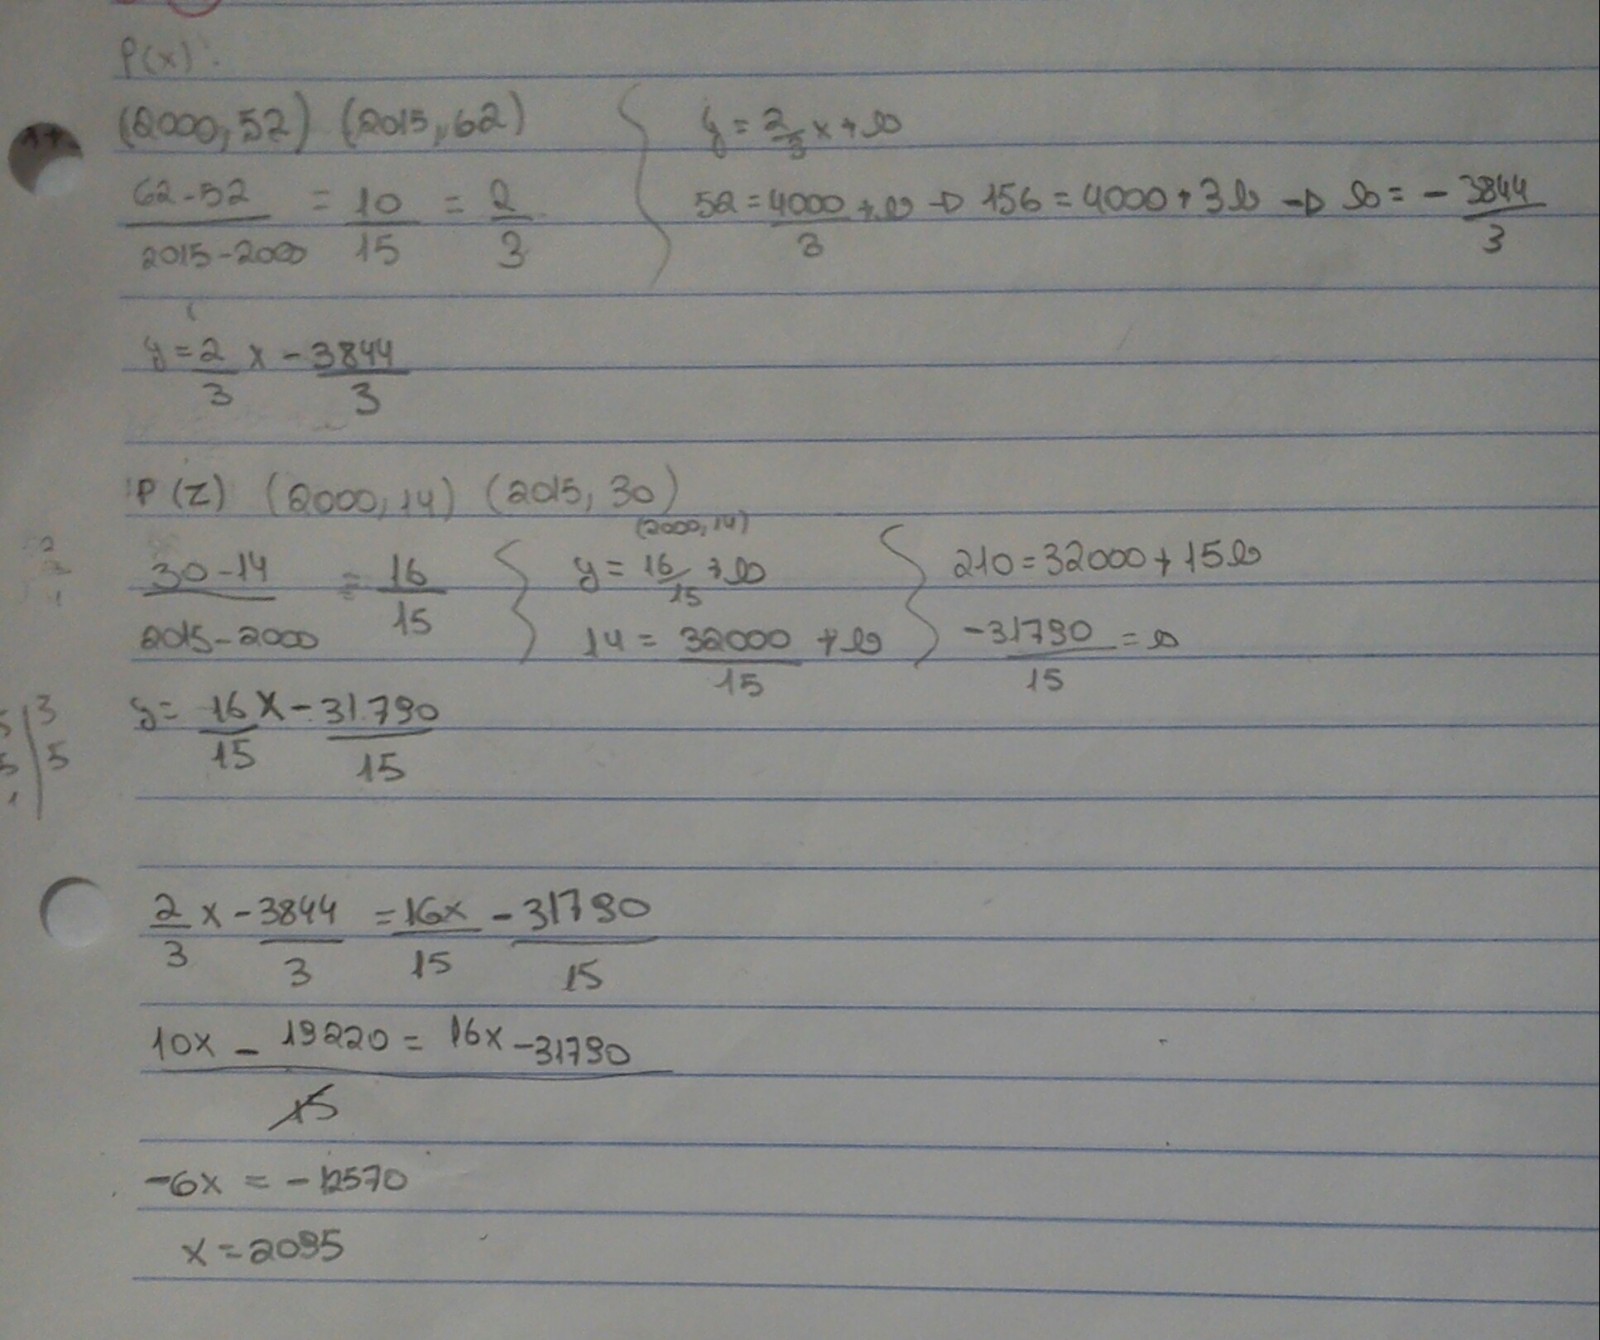 P(x):
(2000,52) (2015,62)
62-52 / 2015-2000 = 10/15 = 2/3
y = 2/3 x + b
52 = 4000/3 + b → 156 = 4000 + 3b → b = - 3844/3
y = 2/3 x - 3844/3
P(Z) (2000,14) (2015,30)
(2000,14)
30-14 / 2015-2000 = 16/15
y = 16/15 + b
14 = 32000/15 + b
210 = 32000 + 15b
-31790/15 = b
y = 16x/15 - 31790/15
2/3 x - 3844/3 = 16x/15 - 31790/15
10x - 19220 = 16x - 31790
15
-6x = -12570
x = 2095